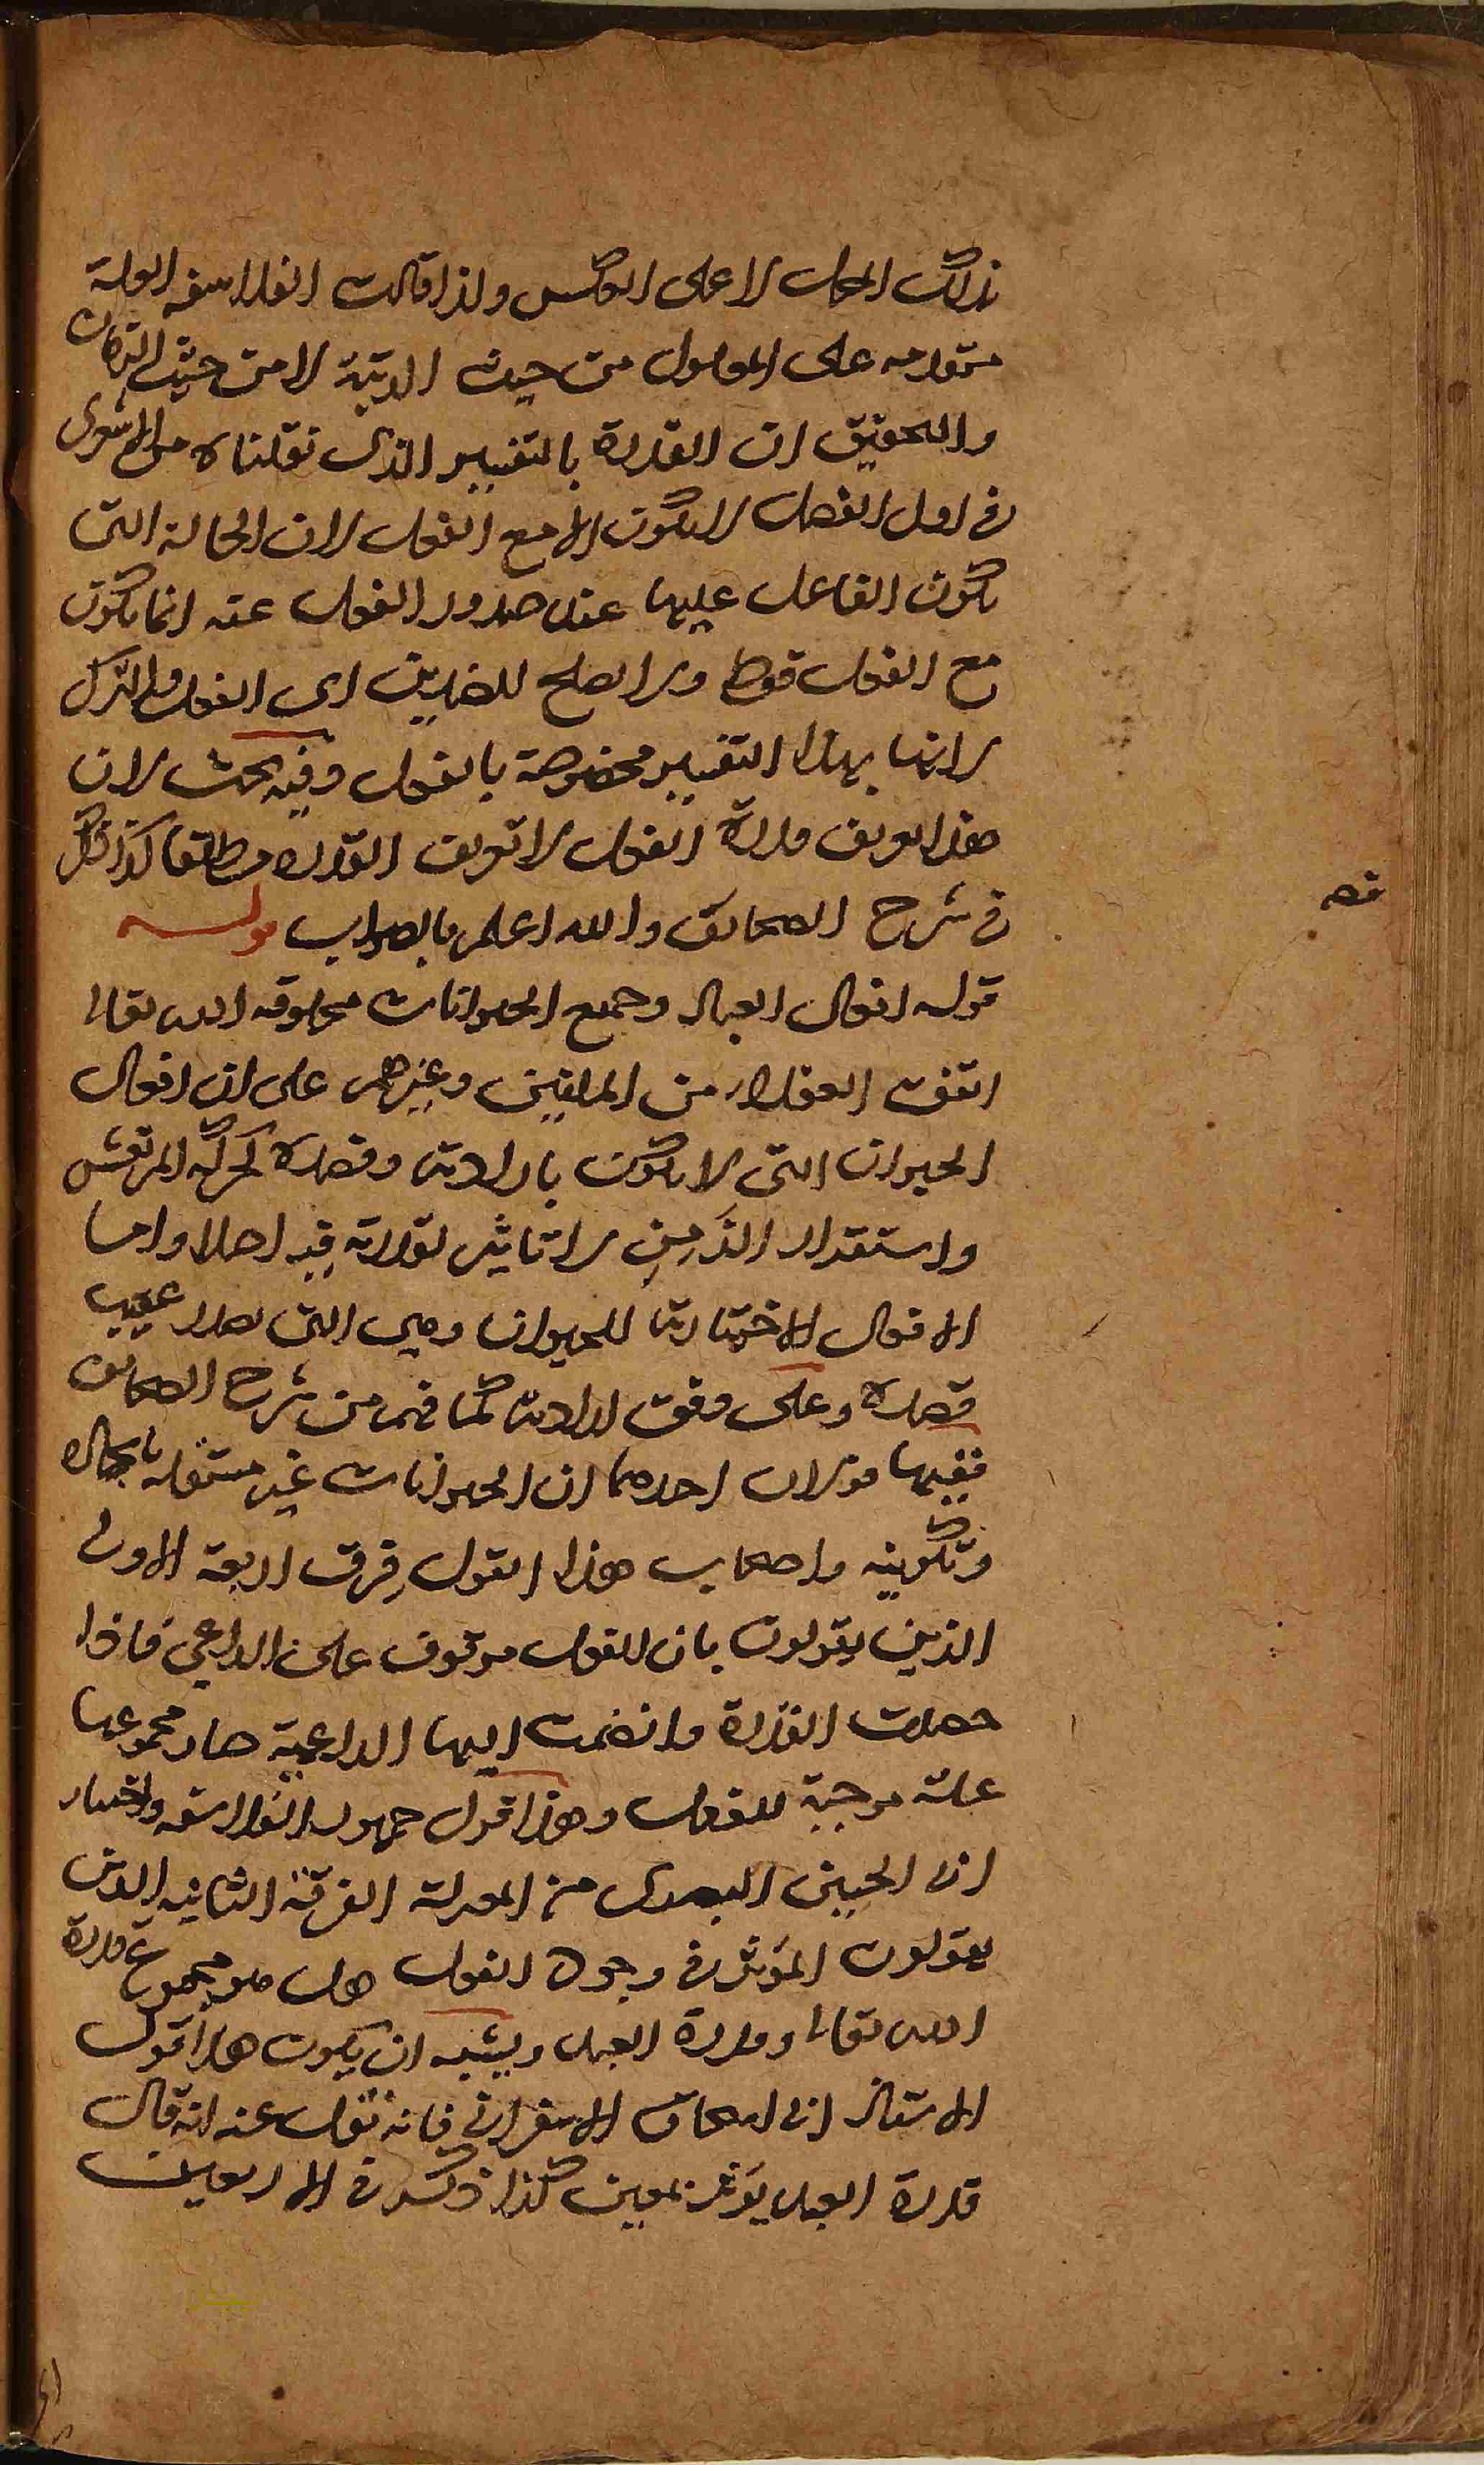 ذلك المحل لا على العكس ولذا قالت الفلاسفه العلة
متقدمه على المعلول من حيث الرتبة لا من حيث الزمان
والتحقيق ان القدرة بالتفسير الذى نقلناه من الاشعرى
فى اول الفصل لا يكون الا مع الفعل لان الحالة التى
يكون الفاعل عليها عند صدور الفعل عنه انما يكون
مع الفعل فقط ولا يصلح للضدين اى الفعل والترك
لانها بهذا التفسير مخصوصة بالفعل وفيه بحث لان
هذا تعريف قدرة الفعل لا تعريف القدره مطلقا كذا ذكر
فى شرح الصحائف والله اعلم بالصواب قوله
قوله افعال العباد وجميع الحيوانات مخلوقه الله تعالى
اتفقت العقلاء من المليين وغيرهم على ان افعال
الحيوان التى لا يكون بارادته وقصده كحركة المرتعش
واستقدار الزَمِنِ لا تاثير لقدرته فيه اصلا واما
الافعال الاختيارية للحيوان وهى التى تصدر عقيب
قصده وعلى وفق ارادته كما فهم من شرح الصحائف
ففيها قولان احدهما ان الحيوانات غير مستقله بايجاده
وتكوينه واصحاب هذا القول فرق اربعة الاولى
الذين يقولون بان الفعل موقوف على الداعى فاذا
حصلت القدرة وانضمت اليها الداعية صار مجموعها
علة موجبة للفعل وهذا قول جمهور الفلاسفه واختيار
ابى الحسين البصرى من المعتزلة الفرقة الثانيه الذين
يقولون المؤثر فى وجود الفعل هل هو مجموع قدرة
الله تعالى وقدرة العبد ويشبه ان يكون هذا قول
الاستاذ ابى اسحاق الاسفراينى فانه نقل عنه انه قال
قدرة العبد يؤثر بمعين كذا ذكر فى الاربعين